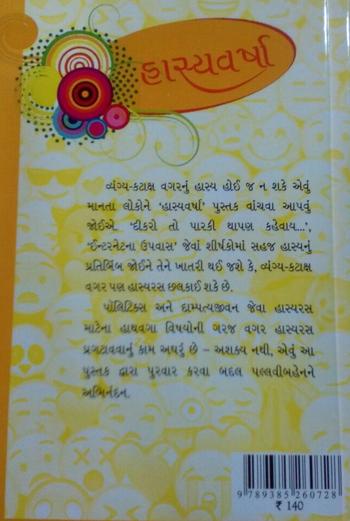 હાસ્યવર્ષા
વ્યંગ્ય-કટાક્ષ વગરનું હાસ્ય હોઈ જ ન શકે એવું
માનતા લોકોને ‘હાસ્યવર્ષા’ પુસ્તક વાંચવા આપવું
જોઈએ. ‘દીકરો તો પારકી થાપણ કહેવાય...’,
‘ઈન્ટરનેટના ઉપવાસ’ જેવાં શીર્ષકોમાં સહજ હાસ્યનું
પ્રતિબિંબ જોઈને તેને ખાતરી થઈ જશે કે, વ્યંગ્ય-કટાક્ષ
વગર પણ હાસ્યરસ છલકાઈ શકે છે.
પૉલિટિક્સ અને દામ્પત્યજીવન જેવા હાસ્યરસ
માટેના હાથવગા વિષયોની ગરજ વગર હાસ્યરસ
પ્રગટાવવાનું કામ અઘરું છે – અશક્ય નથી, એવું આ
પુસ્તક દ્વારા પુરવાર કરવા બદલ પલ્લવીબહેનને
અભિનંદન.
9 789385 260728
₹ 140